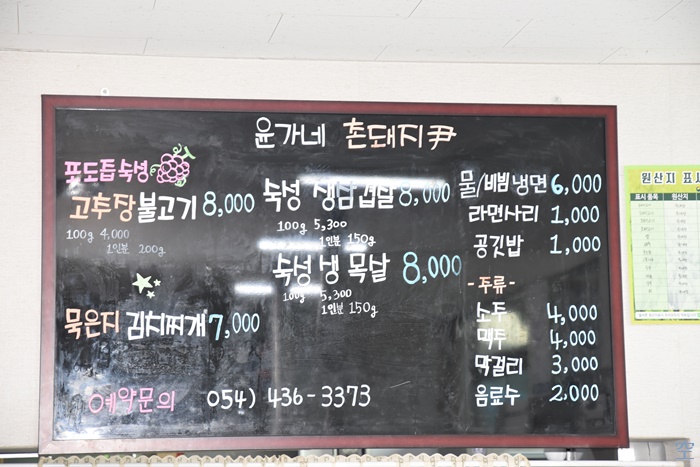 윤가네 촌돼지尹
포도즙숙성
고추장불고기 8,000
100g 4,000
1인분 200g
묵은지 김치찌개 7,000
숙성 생삼겹살 8,000
100g 5,300
1인분 150g
숙성 냉 목살 8,000
100g 5,300
1인분 150g
물/비빔냉면 6,000
라면사리 1,000
공깃밥 1,000
-주류-
소주 4,000
맥주 4,000
막걸리 3,000
음료수 2,000
예약문의 054) 436-3373
원산지 표시
표시 품목 원산지